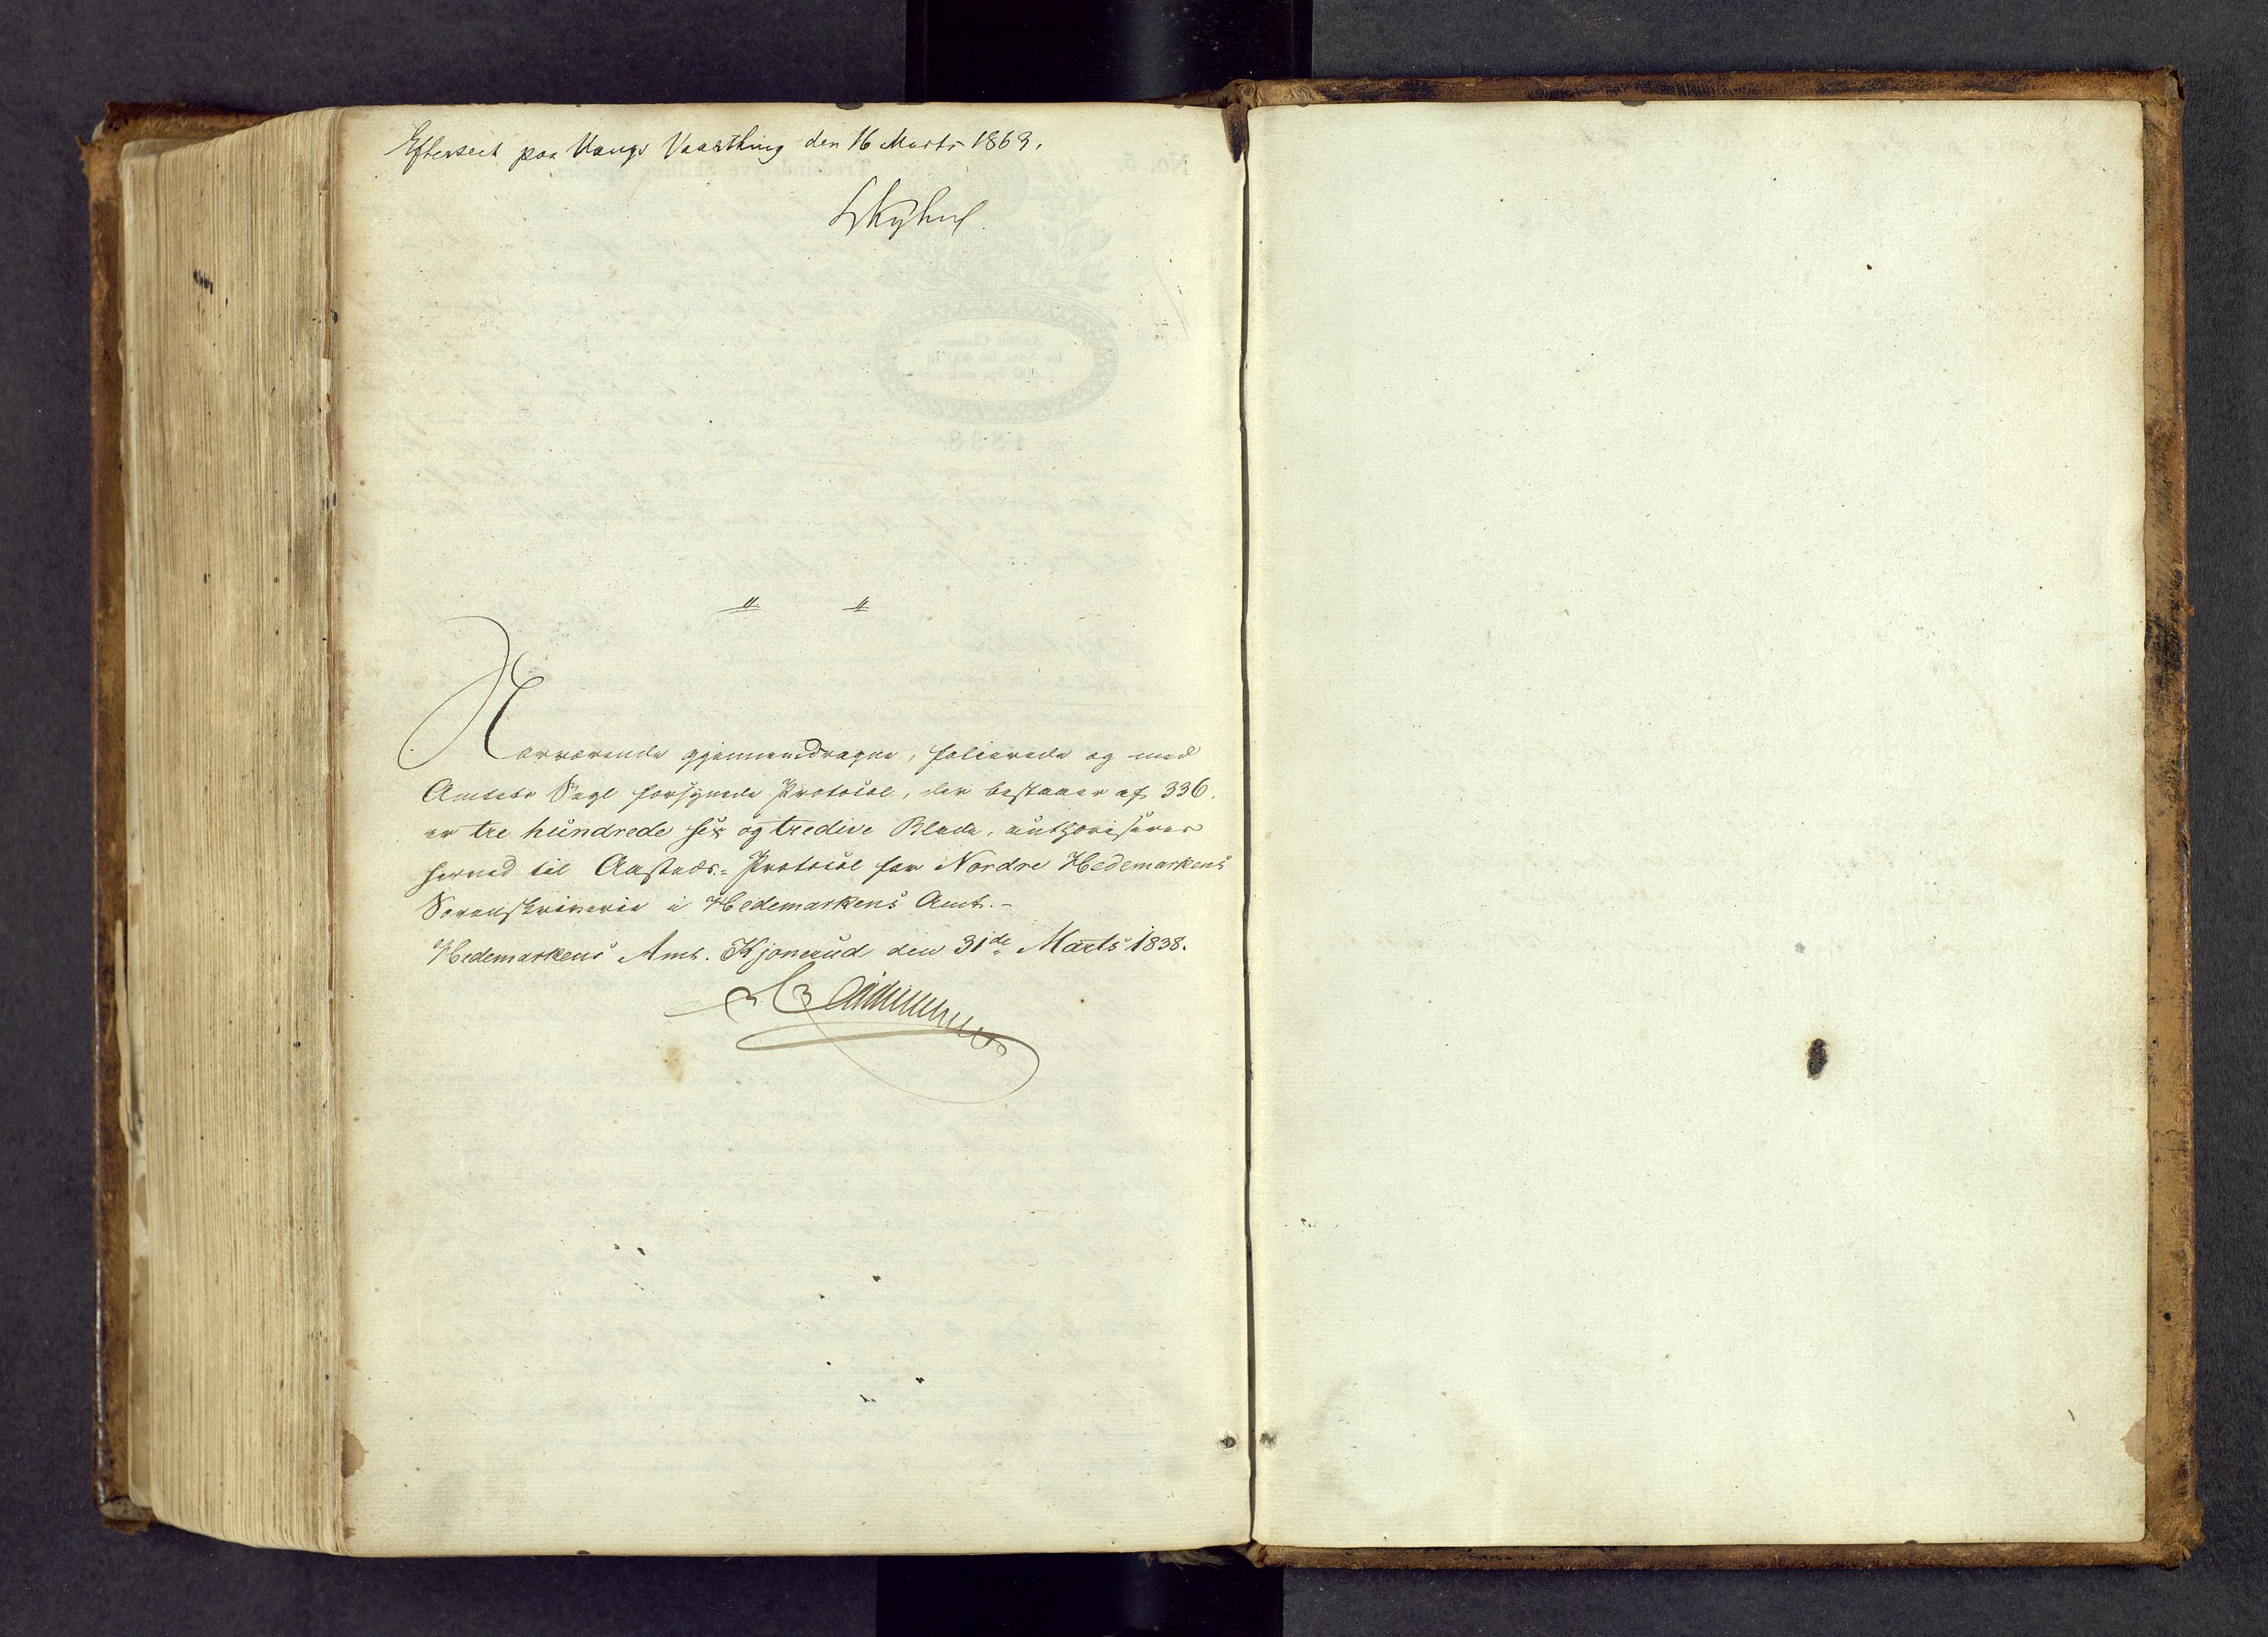 Efterseet paa Vangs Vaarthing den 16 Marts 1869.
Nærværende gjennemdragne, folierede og med
Amtets Segl forsynede Protocol, der bestaaer af 336.
er tre hundrede sex og tredive Blade, authoriseres
herved til Aasteds-Protocol for Nordre Hedemarkens
Sorenskriverie i Hedemarkens Amt.-
Hedemarkens Amt. Kjonerud den 31de Marts 1838.